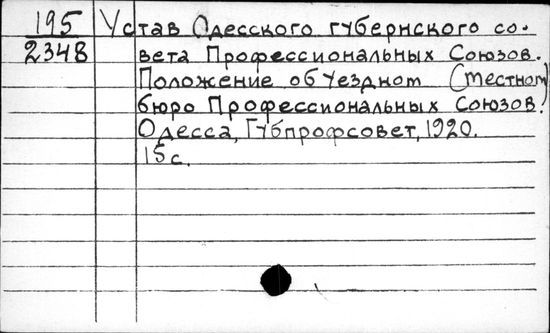 195 Устав Одесского губернского со-
2348 вета Профессиональных Союзов.
Положение об уездном (местном)
бюро Профессиональных Союзов.
Одесса, Губпрофсовет, 1920.
15 с.